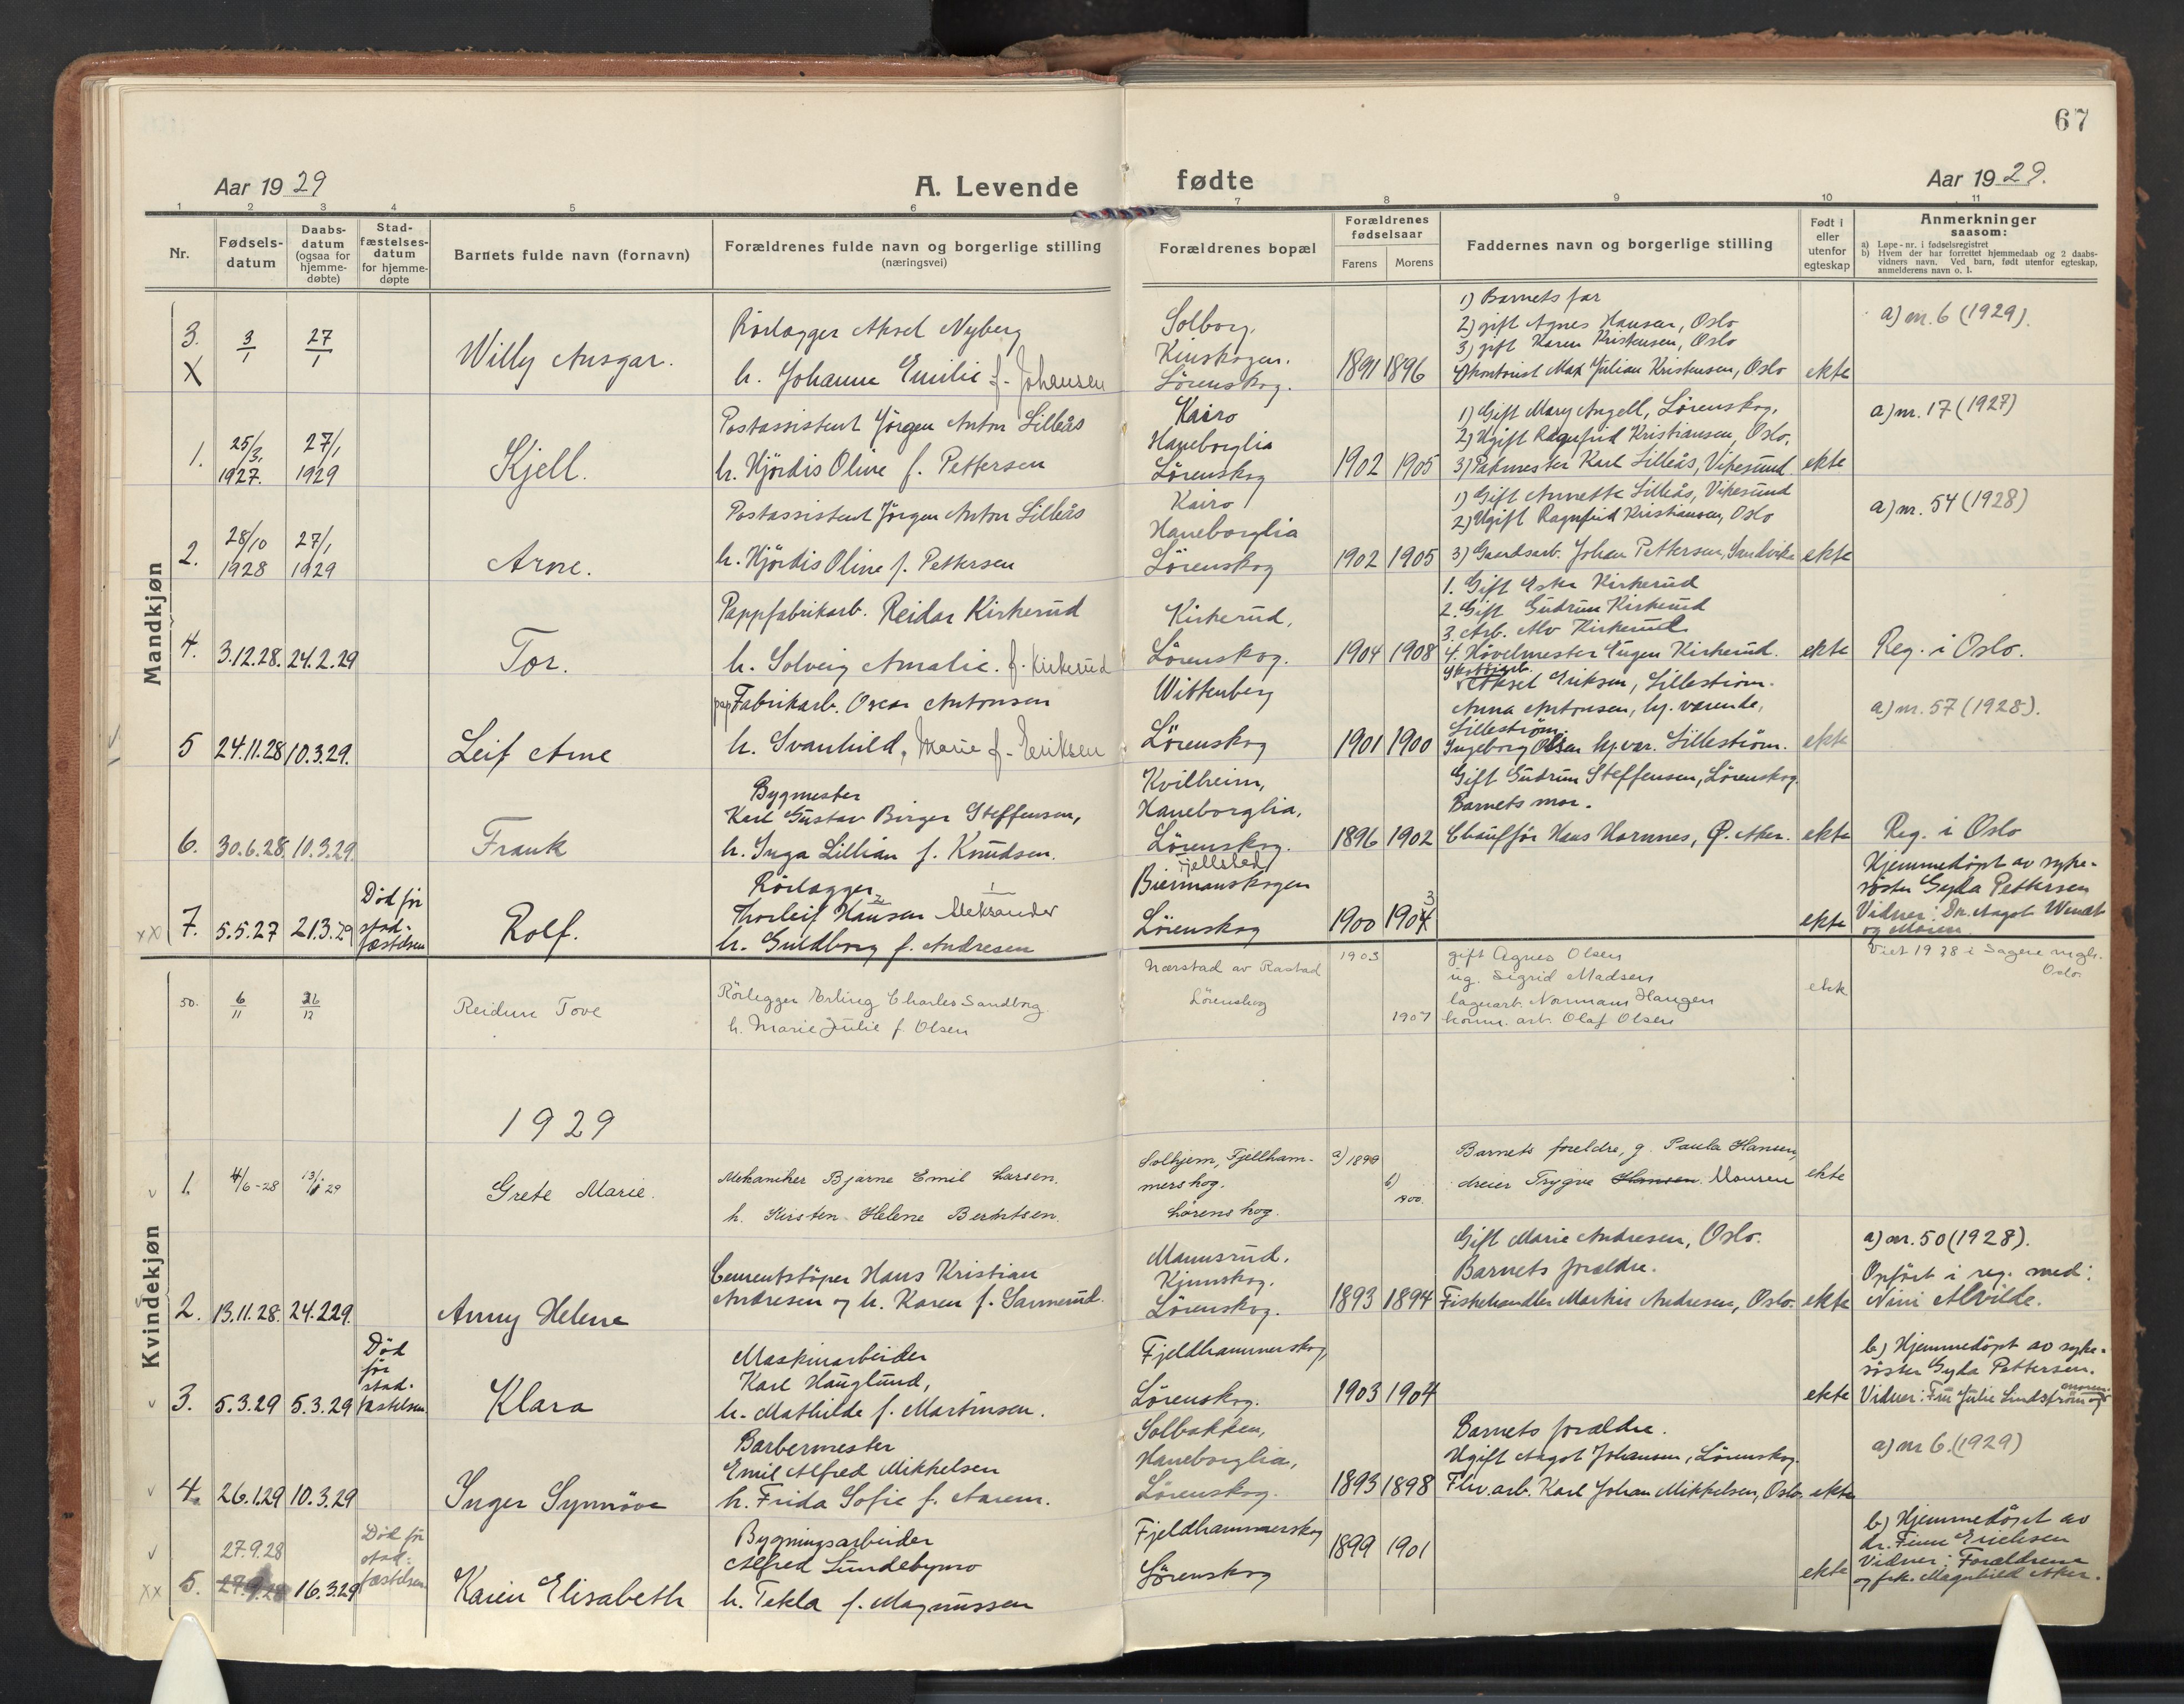 67
Aar 1929
A. Levende fødte
Aar 1929.
1 2 3 4 5 6 7 8 9 10 11
Nr.
Fødsels-
datum
Daabs-
datum
(ogsaa for
hjemme-
døbte)
Stad-
fæstelses-
datum
for hjemme-
døpte
Barnets fulde navn (fornavn)
Forældrenes fulde navn og borgerlige stilling
(næringsvei)
Forældrenes bopæl
Forældrenes
fødselsaar
Farens Morens
Faddernes navn og borgerlige stilling
Født i
eller
utenfor
egteskap
Anmerkninger
saasom:
a) Løpe-nr. i fødselsregistret
b) Hvem der har forrettet hjemmedaab og 2 daabs-
vidners navn. Ved barn, født utenfor egteskap,
anmelderens navn o. l.
Mandkjøn
3.
X
3/1
27/1
Willy Ansgar.
Rørlægger Aksel Nyberg
h. Johanne Emilie f. Johansen
Solborg,
Lørenskog.
1891 1896
1) Barnets far
2) gift Agnes Hansen, Oslo
3) gift Karen Kristensen, Oslo
4) kontorist Max Julian Kristensen, Oslo
ekte
a) nr. 6 (1929).
1.
25/3.
1927.
27/1
1929
Kjell.
Postassistent Jörgen Anton Lilleås
h. Hjördis Oline f. Pettersen
Kairo
Haneborglia
Lörenskog
1902 1905
1) Gift Mary Angell, Lörenskog.
2) Ugift Ragnfrid Kristiansen, Oslo.
3) Pakmester Karl Lilleås, Vikesund
ekte
a) nr. 17 (1927)
2.
28/10
1928
27/1
1929
Arne.
Postassistent Jörgen Anton Lilleås
h. Hjördis Oline f. Pettersen
Kairo
Haneborglia
Lörenskog
1902 1905
1) Gift Annette Lilleås, Vikesund
2) Ugift Ragnfrid Kristiansen, Oslo
3) Gaardsarb. Johan Pettersen, Sandvika
ekte
a) nr. 54 (1928)
4.
3.12.28.
24.2.29
Tor.
Pappfabrikarb. Reidar Kirkerud
h. Solveig Amalie. f. Kirkerud
Kirkerud,
Lörenskog.
1904 1908
1. Gift Ester Kirkerud
2. Gift Gudrun Kirkerud
3. Arb. Alv Kirkerud
4. Hövelmester Eugen Kirkerud.
ekte
Reg. i Oslo.
5
24.11.28
10.3.29.
Leif Arne
pap Fabrikarb. Oscar Antonsen
h. Svanhild, Marie f. Eriksen
Wittenberg
Lörenskog
1901 1900
Aksel Eriksen, Lilleström.
Anna Antonsen, hj. værende,
Lilleström
Ingeborg Olsen hj.vær. Lilleström.
ekte
a) nr. 57 (1928).
6.
30.6.28
10.3.29
Frank
Bygmester
Karl Gustav Birger Steffensen,
h. Inga Lillian f. Knudsen.
Kvilheim,
Haneborglia,
Lörenskog.
1896 1902
Gift Gudrun Steffensen, Lörenskog.
Barnets mor.
Chauffør Hans Hornnes, Ø. Aker.
ekte
Reg. i Oslo
xx
7.
5.5.27
21.3.29
Död før
stad-
fæstelsen
Rolf.
Rörlægger
Thorleif Hansen Aleksander
h. Guldborg f. Andresen
Fjellstad
Biermanskogen
Lörenskog
1900 1904 3
ekte
Hjemmedöpt av syke-
søster Gyda Pettersen
Vidner: Dr. Aagot Wendt
og Moren
Kvindekjøn
50.
6/11
26/12
Reidun Tove
Rörlegger Erling Charles Sandborg
h. Marie Julie f. Olsen
Nærstad av Rastad
Lörenskog
1903
1907
gift Agnes Olsen
ug. Sigrid Madsen
lagerarb. Normann Haugen
komm. arb. Olaf Olsen
ekte
Viet 1928 i Sagene mgh.
Oslo
1929
1.
4/6-28
13/1 29
Grete Marie.
Mekaniker Bjarne Emil Larsen.
h. Kirsten Helene Berntsen.
Solhjem, Fjellham-
merskog.
Lørenskog.
a) 1899
b) 1900.
Barnets foreldre, g. Paula Hansen,
dreier Trygve Hansen Mouren
ekte
2.
13.11.28.
24.2.29.
Anny Helene
Cementstöper Hans Kristian
Andresen og h. Karen f. Sannerud.
Mannsrud,
Kjennskog.
Lörenskog.
1893 1894
Gift Marie Andresen, Oslo.
Barnets forældre.
Fiskehandler Martin Andresen, Oslo.
ekte
a) nr. 50 (1928).
Opfört i reg. med:
Nini Alvilde.
v
3.
5.3.29
5.3.29
Död
før
stad-
fæstelsen
Klara
Maskinarbeider
Karl Hauglund,
h. Mathilde f. Martinsen.
Fjeldhammerskog,
Lörenskog.
1903 1904
ekte
b) Hjemmedöpt av syke-
søster Gyda Pettersen.
Vidner: Fru Julie Lindström og
moren.
v
4.
26.1.29
10.3.29
Inger Synnöve
Barbermester
Emil Alfred Mikkelsen
h. Frida Sofie f. Aarem.
Solbakken,
Haneborglia,
Lörenskog.
1893 1898
Barnets forældre.
Ugift Aagot Johansen, Lörenskog.
Flw. arb. Karl Johan Mikkelsen, Oslo.
ekte
a) nr 6. (1929)
v
xx
5.
27.9.28
27.9.28
16.3.29
Död før
stad-
fæstelsen
Karin Elisabeth
Bygningsarbeider
Alfred Lundebymo
h. Tekla f. Magnussen
Fjeldhammerskog
Lörenskog
1899 1901
ekte
b) Hjemmedöpt av
dr. Finn Erichsen
Vidner: Forældrene
og frk. Magnhild Aker.